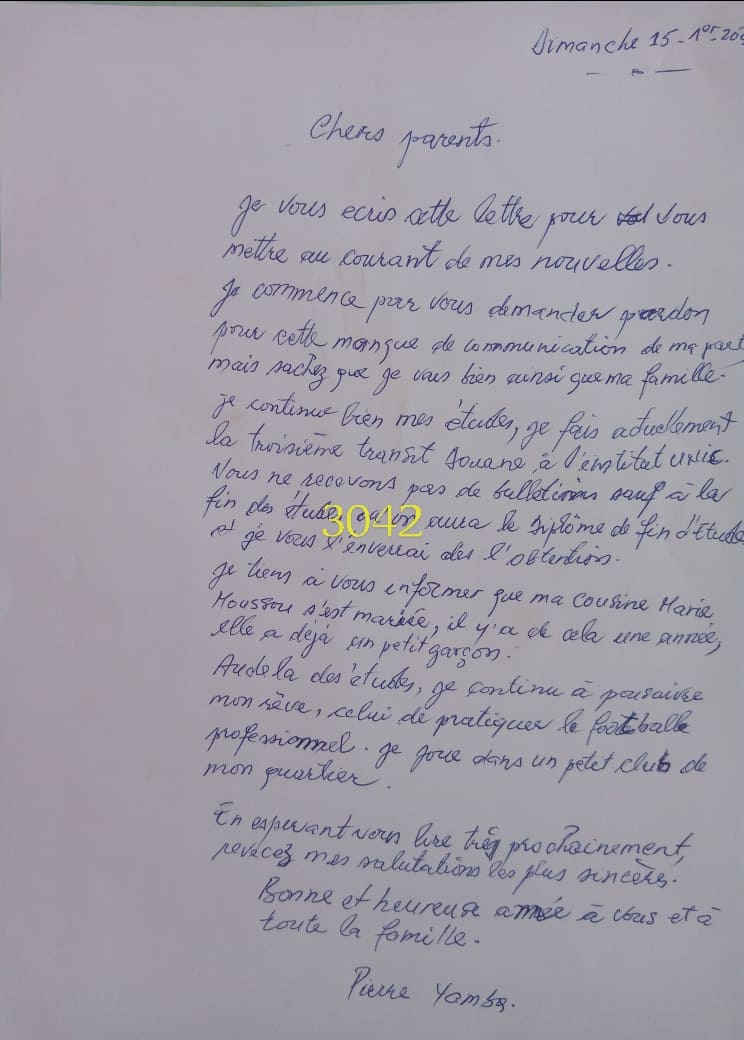 Dimanche 15-1er-20
Chers parents.
Je vous ecris cette lettre pour vous
mettre au courant de mes nouvelles.
Je commence par vous demander pardon
pour cette manque de communication de ma part
mais sachez que je vais bien ainsi que ma famille.
je continue bien mes études, je fais actuellement
la troisième transit Douane, à l'institut UNIC.
Nous ne recevons pas de bulletins sauf à la
fin des étude, on aura le Diplôme de fin d'Etude
et je vous l'enverrai dès l'obtention.
je tiens à vous informer que ma cousine Marie
Moussou s'est mariée, il y'a de cela une année,
elle a déjà un petit garçon.
Audela des études, je continu à poursuivre
mon rêve, celui de pratiquer le footballe
professionnel. je joue dans un petit club de
mon quartier.
En esperant vous lire très prochainement,
recevez mes salutations les plus sincères.
Bonne et heureuse année à vous et à
toute la famille.
Pierre Yamba.
3042